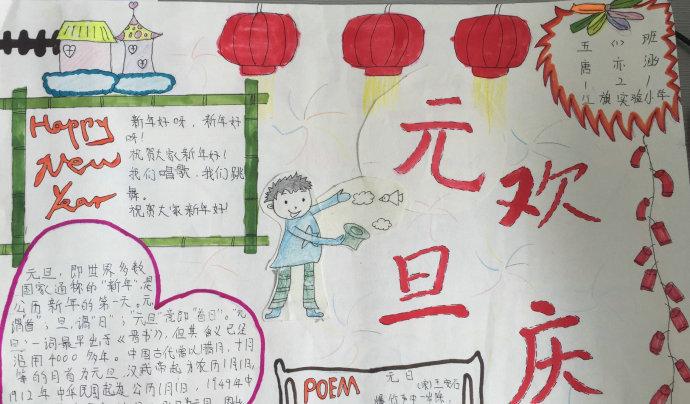 Happy
New
Year
新年好呀,新年好
呀!
祝贺大家新年好!
我们唱歌,我们跳
舞。
祝贺大家新年好!
元旦
欢庆
五(2)班
唐亦涵
实验小学
元旦,即世界多数
国家通称的“新年”,是
公历新年的第一天。元,
谓“首”;旦,谓“日”;“元旦”意即“首日”。“元
旦”一词最早出于《晋书》,但其含义已
沿用4000多年。中国古代曾以腊月、十月
等的月首为元旦,汉武帝起为农历1月1日,
1912年中华民国起为公历1月1日,1949年中
POEM
元日
(宋)王安石
爆竹声中一岁除,